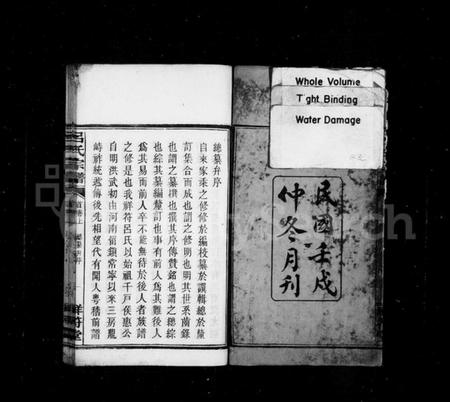 Whole Volume
Tight Binding
Water Damage
民國壬戌
仲冬月刊
總纂弁序
自來家乘之修修於編校纂於讚輯總於釐
訂集合而成也謂之修明也明其世系備錄
也謂之纂撰也撰其序傳贊銘也謂之總綜
也綜其纂編釐訂也事有前人爲其難後人
爲其易而前人卒不能無待於後人者族譜
之修是也我祥符呂氏以始祖千戶侯惠公
自明洪武初由河南
常寧以來三房龍
峙祚統遞傳後先相望代有聞人粤稽前譜
呂氏宗譜
首卷上
祥符堂